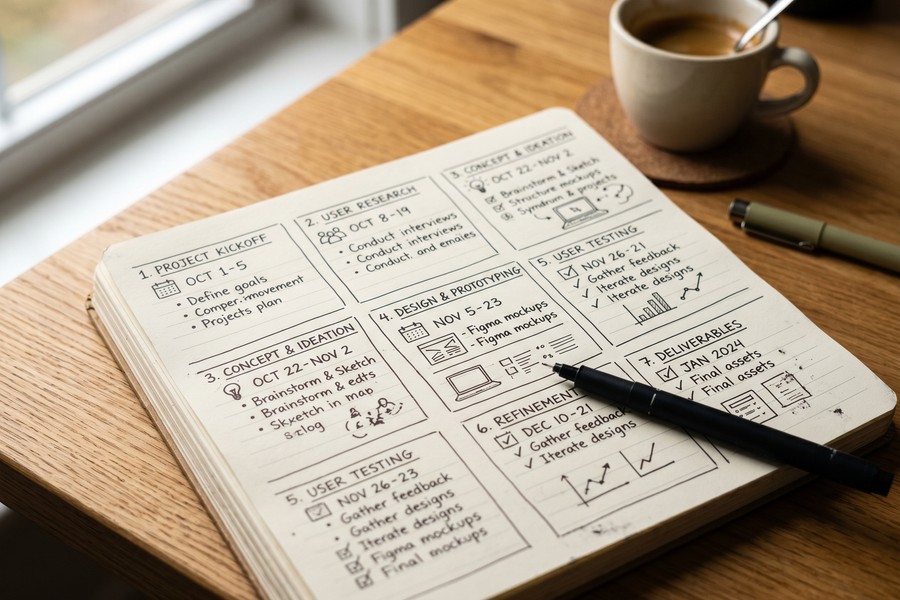 1. PROJECT KICKOFF
OCT 1-5
• Define goals
• Comper.movement
• Projects plan
2. USER RESEARCH
OCT 8-19
• Conduct interviews
• Conduct interviews
• Conduct and emaies
3. CONCEPT & IDEATION
OCT 22-NOV 2
Brainstorm & Sketch
Structure mockups
Symdrum & projects
3. CONCEPT & IDEATION
OCT 22-NOV 2
• Brainstorm & Sketch
• Brainstorm & edts
• Skxetch in mab
szlog
4. DESIGN & PROTOTYPING
NOV 5-23
- Figma mockups
- Figma mockups
5. USER TESTING
NOV 26-21
Gather feedback
Iterate designs
Iterate designs
5. USER TESTING
NOV 26-23
• Gather feedback
• Gather designs
Iterate designs
Figma mockups
Final mockups
6. REFINEMENT
DEC 10-21
Gather feedback
Iterate designs
7. DELIVERABLES
JAN 2024
Final assets
Final assets